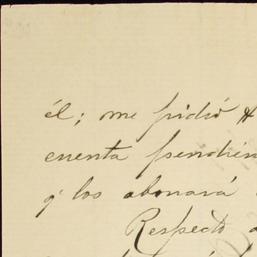 él; me pidió
cuenta
q' los abonará
Respecto a